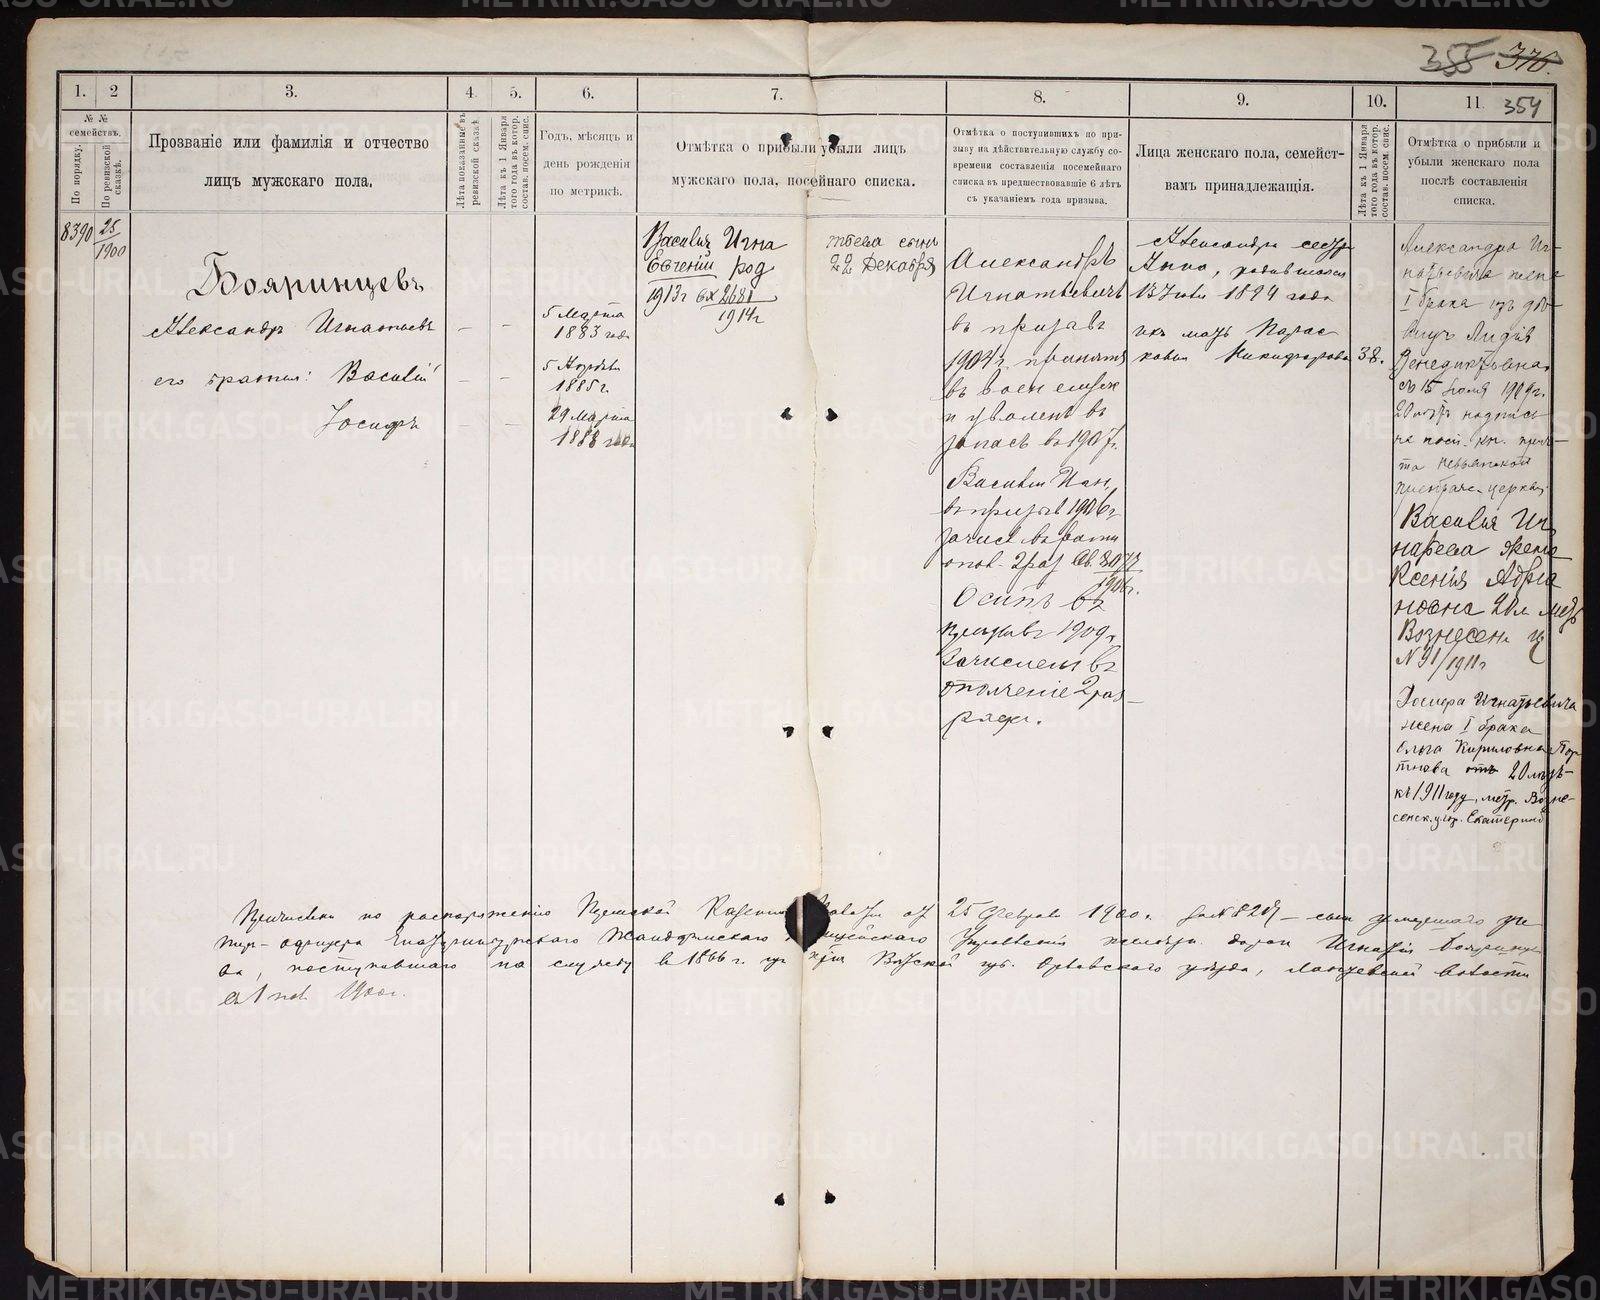 355 376.
354
1. 2 3. 4. 5. 6. 7. 8. 9. 10. 11
№ №
семействъ.
По порядку.
По ревизской
сказкѣ.
Прозваніе или фамилія и отчество
лицъ мужскаго пола.
Лѣта показанныя въ
ревизской сказкѣ.
Лѣта къ 1 Января
того года въ котор.
состав. посем. спис.
Годъ, мѣсяцъ и
день рожденія
по метрикѣ.
Отмѣтка о прибыли убыли лицъ
мужскаго пола, посейнаго списка.
Отмѣтка о поступившихъ по при-
зыву на дѣйствительную службу со-
времени составленія посемейнаго
списка въ предшествовавшіе 6 лѣтъ
съ указаніемъ года призыва.
Лица женскаго пола, семейст-
вамъ принадлежащія.
Лѣта къ 1 Января
того года въ котор.
состав. посем. спис.
Отмѣтка о прибыли и
убыли женскаго пола
послѣ составленія
списка.
8390 25
1900
Бояринцевъ
Александръ Игнатьевъ — —
5 Марта
1883 года
его братья: Василій — —
5 Апрѣля
1885 г.
Іосифъ — —
29 Марта
1888 года
Василія Игна тьева сынъ
Евгеній род 22 Декабря
1913г вх 2681
1914г
Александръ
Игнатьевичъ
въ призывъ
1904 г. принятъ
въ воен службу
и уволенъ въ
запасъ въ 1907 г.
Василій Игн.
въ призывъ 1906 г
зачисл въ ратн
опол. 2 раз Св. 8073
1906 г.
Осипъ въ
призывъ 1909 г.
Зачисленъ въ
ополченіе 2 раз-
ряда.
Александра сестра
Анна, родившаяся
13 1894 года
ихъ мать Парас-
ковья Никифоровна 38.
Александра Иг-
натьевича жена
I брака изъ дѣ-
вицъ Лидія
Венедиктовна
съ 15 1909 г.
20 лѣтъ надпись
на посл. кн. прич-
та Невьянской
церкви.
Василія Иг-
натьева жена
Ксенія Адріа
новна 20л мет
Вознесен ц
N 91/1911 г
Іосифа Игнатьевича
жена I брака
Ольга Кириловна Пор
тнова отъ 20 лѣтъ
къ 1911 году, метр. Возне-
сенск. ц. гор. Екатеринб
Причислены по распоряженію Пермской Казенной Палаты от 25 Февраля 1900 г. за № 8209 — сын умершаго ун-
тер-офицера Екатеринбургскаго Жандармскаго Полицейскаго Управленія дорог Игнатій Бояринце
ва, поступившаго на службу в 1866 г. из Вятской губ. Орловскаго уѣзда, волости
съ 1 1900 г.
METRIKI.GASO-URAL.RU